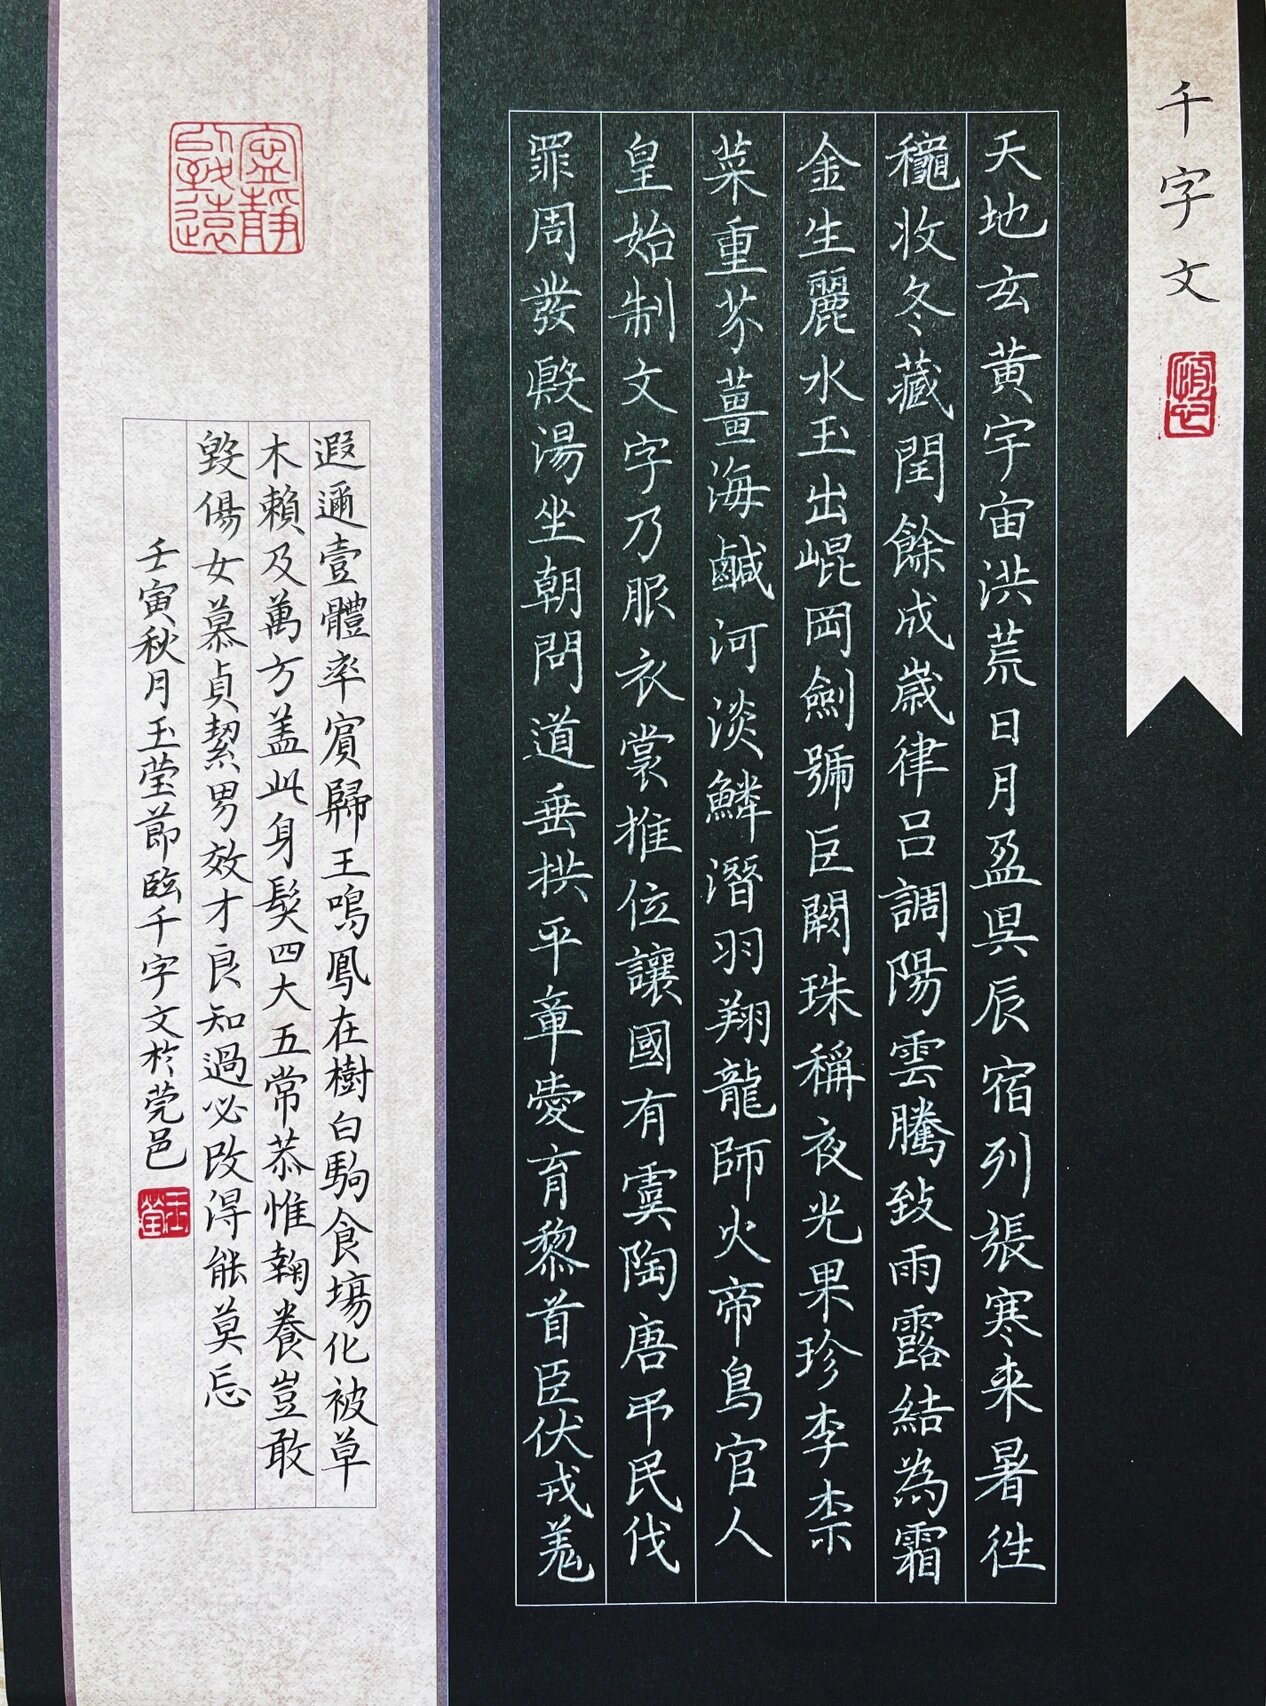 千字文
天地玄黄宇宙洪荒日月盈昃辰宿列張寒来暑往
龝收冬藏閏餘成歲律呂調陽雲騰致雨露結為霜
金生麗水玉出崐岡劍號巨闕珠稱夜光果珍李柰
菜重芥薑海鹹河淡鱗潛羽翔龍師火帝鳥官人
皇始制文字乃服衣裳推位讓國有虞陶唐弔民伐
罪周發殷湯坐朝問道垂拱平章愛育黎首臣伏戎羌
寧靜致遠
遐邇壹體率賓歸王鳴鳳在樹白駒食場化被草
木賴及萬方盖此身髮四大五常恭惟鞠養豈敢
毀傷女慕貞絜男效才良知過必改得能莫忘
壬寅秋月玉莹節臨千字文於莞邑
玉莹